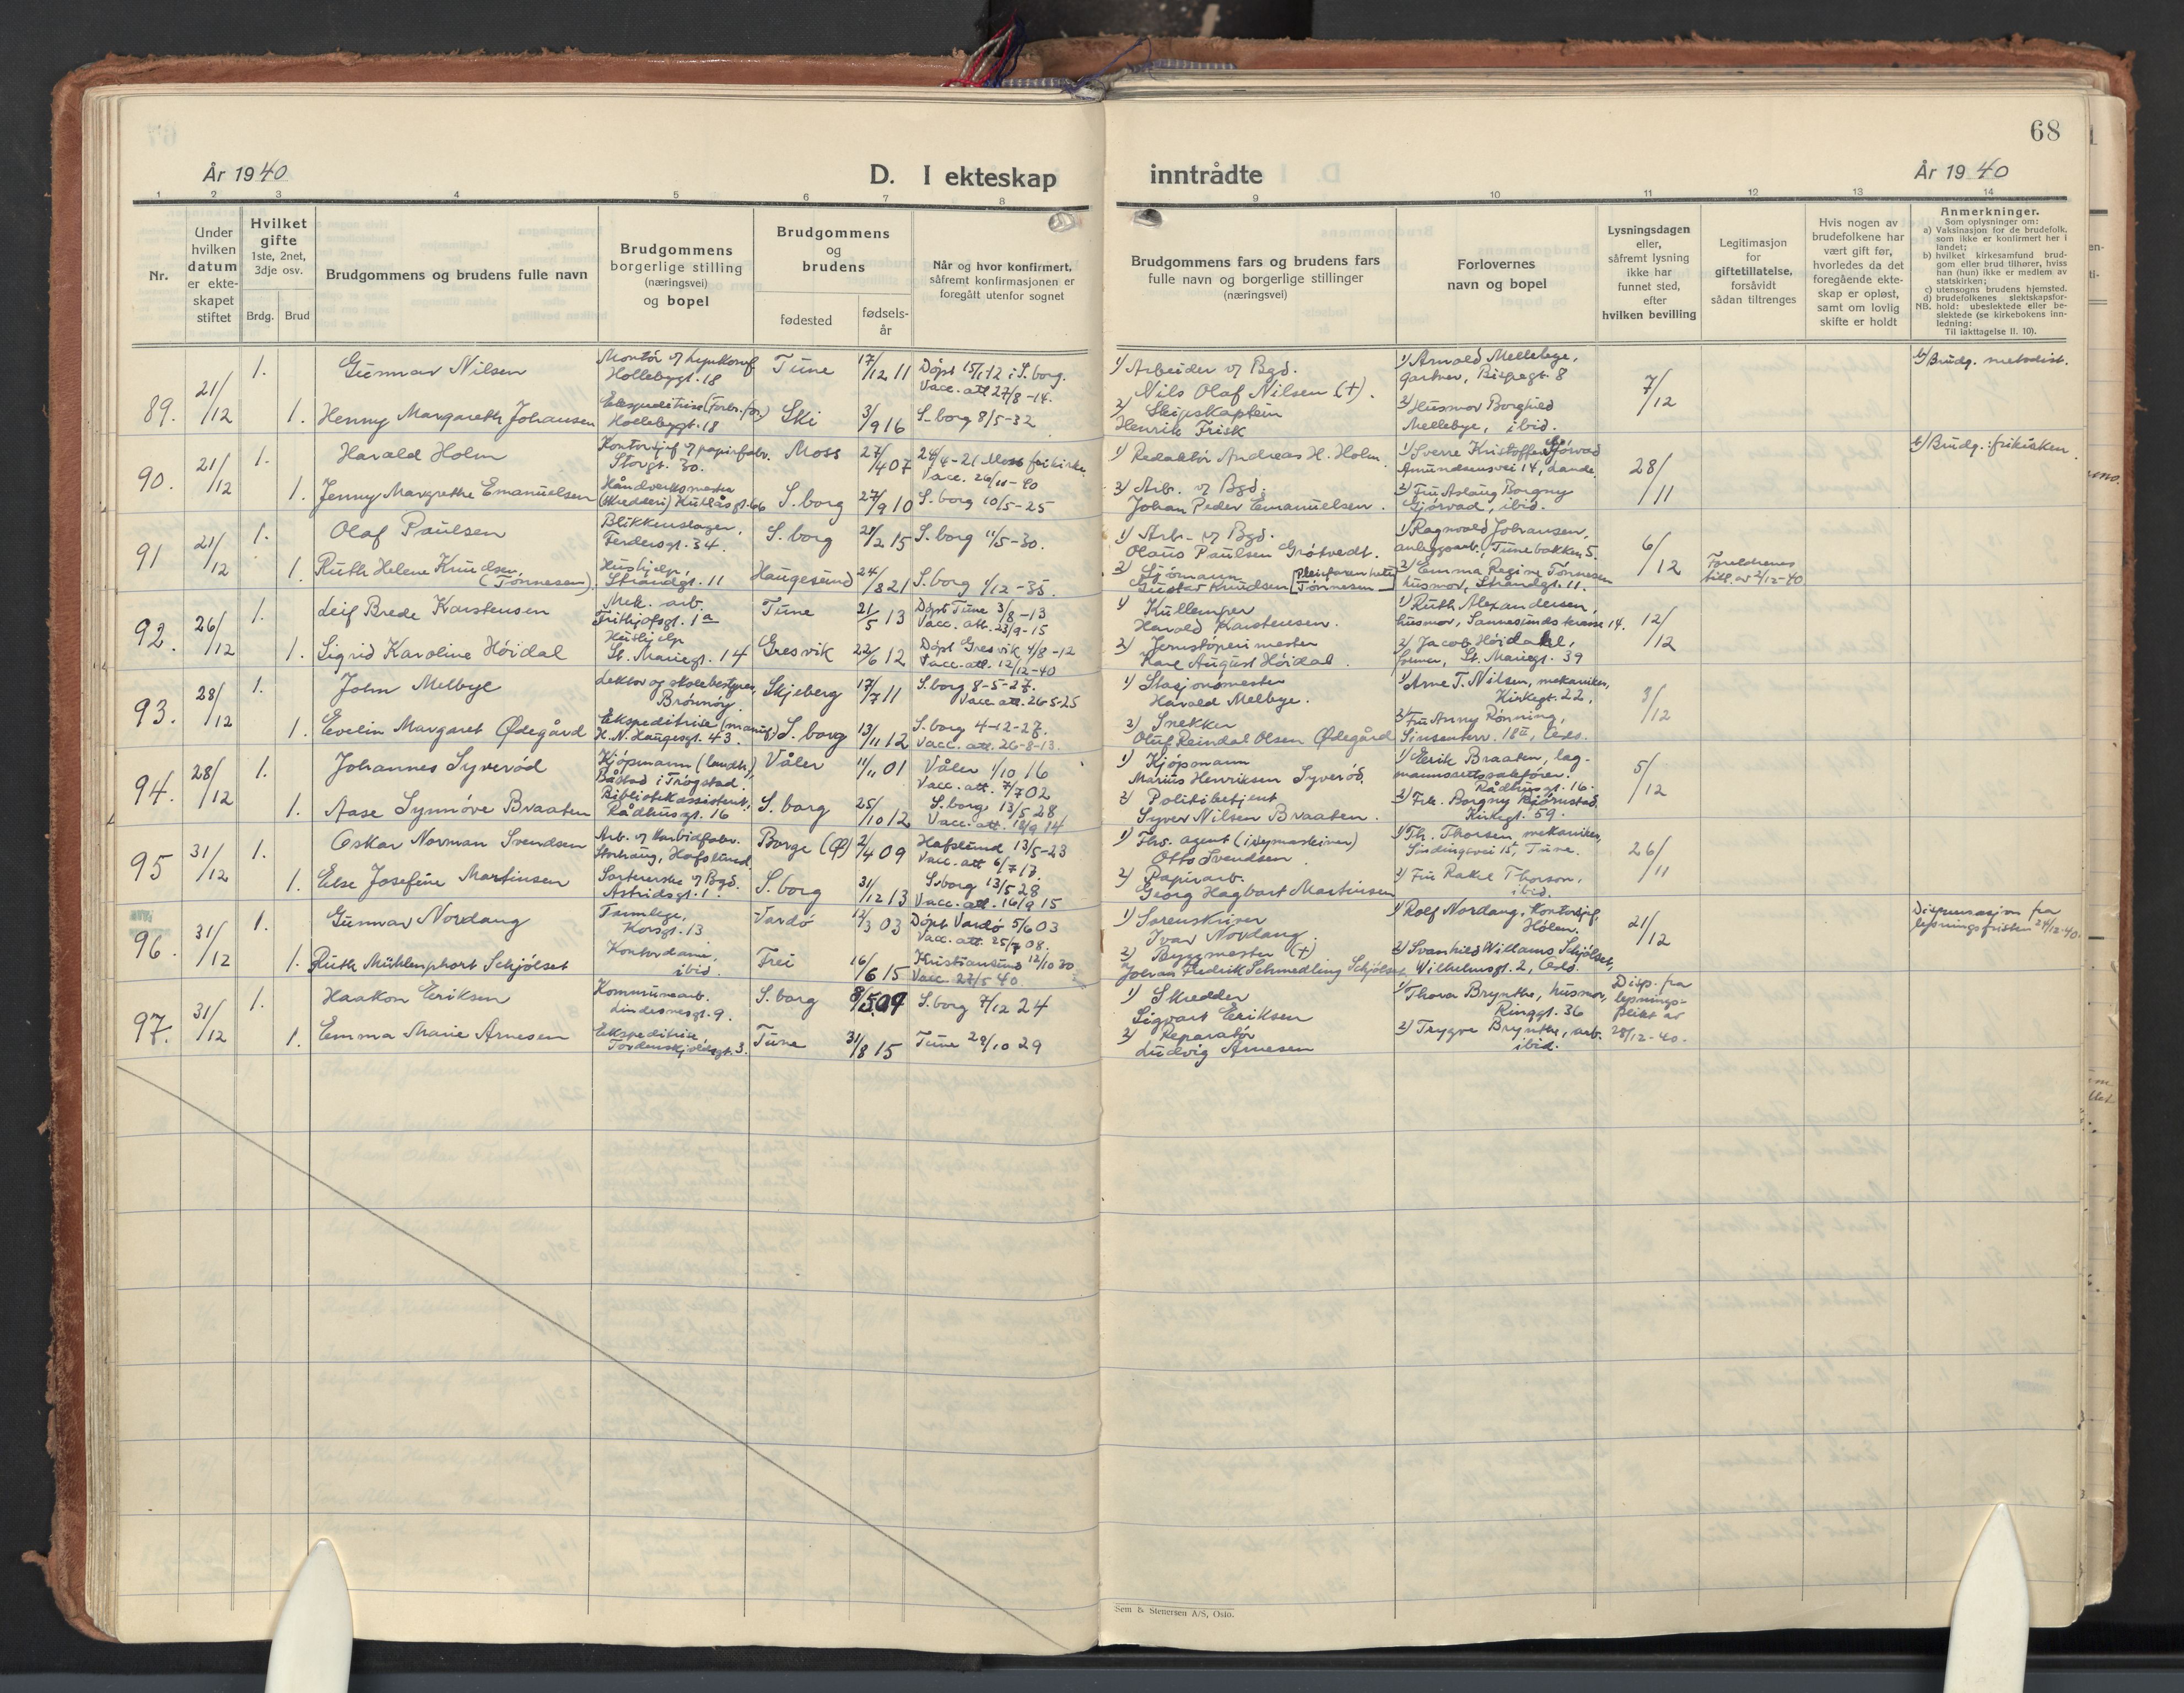 68
År 1940
D. I ekteskap
inntrådte
År 1940
1
2
3
4
5
6
7
8
9
10
11
12
13
14
Nr.
Under
hvilken
datum
er ekte-
skapet
stiftet
Hvilket
gifte
1ste, 2net,
3dje osv.
Brdg. Brud
Brudgommens og brudens fulle navn
Brudgommens
borgerlige stilling
(næringsvei)
og bopel
Brudgommens
og
brudens
fødested
fødsels-
år
Når og hvor konfirmert,
såfremt konfirmasjonen er
foregått utenfor sognet
Brudgommens fars og brudens fars
fulle navn og borgerlige stillinger
(næringsvei)
Forlovernes
navn og bopel
Lysningsdagen
eller,
såfremt lysning
ikke har
funnet sted,
efter
hvilken bevilling
Legitimasjon
for
giftetillatelse,
forsåvidt
sådan tiltrenges
Hvis nogen av
brudefolkene har
vært gift før,
hvorledes da det
foregående ekte-
skap er opløst,
samt om lovlig
skifte er holdt
Anmerkninger.
Som oplysninger om:
a) Vaksinasjon for de brudefolk,
som ikke er konfirmert her i
landet;
b) hvilket kirkesamfund brud-
gom eller brud tilhører, hviss
han (hun) ikke er medlem av
statskirken;
c) utensogns brudens hjemsted.
d) brudefolkenes slektskapsfor-
NB. hold: ubeslektede eller be-
slektede (se kirkebokens inn-
ledning:
Til iakttagelse II. 10).
89. 21/12 1. Gunnar Nilsen
Montør v/
Hollebygt. 18
Tune 17/12 11
Døpt 15/1-12 i S.borg.
Vacc. att 27/8-14.
1. Henny Margareth Johansen
Ekspeditrise
Hollebygt. 18
Ski 3/9 16 S.borg 8/5-32
1) Arbeider v/ Bgd.
Nils Olaf Nilsen (+).
2) Skipskaptein
Henrik Frisk
1) Arnold Mellebye,
gartner, Bispegt. 8
2) Husmor Borghild
Mellebye, ibid.
7/12
b) Brudg. metodist.
90. 21/12 1. Harald Holm
Kontorsjef v/ papirfabr.
Storgt. 30.
Moss 27/4 07
24/4-21 Moss frikirke
Vacc. 26/11-40
1. Jenny Margrethe Emanuelsen
Håndverksmester
(Skredderi) Kullåsgt. 66
S.borg 27/9 10 S.borg 10/5-25
1) Redaktør Andreas H. Holm.
2) Arb. v/ Bgd.
Johan Peder Emanuelsen.
1) Sverre Kristoffer Gjörvad
Amundsensvei 14, Lande
2) Fru Aslaug Borgny
Gjörvad, ibid.
28/11
b) Brudg.: frikirken.
91 21/12 1. Olaf Paulsen
Blikkenslager,
Ferdersgt. 34.
S.borg 28/2 15 S.borg 11/5-30.
1. Ruth Helene Knudsen,
(Tønnesen).
Hushjelp,
Strandgt. 11
Haugesund 24/8 21 S.borg 1/12-35.
1) Arb. v/ Bgd.
Olaus Paulsen Grötvedt.
2) Sjömann
Gustav Knudsen [Pleiefaren heter Tønnesen]
1) Ragnvald Johansen,
anleggsarb., Tunebakken 5.
2) Emma Regine Tønnesen
husmor, Strandgt. 11.
6/12
Foreldrenes
till. av 2/12-40
92. 26/12 1. Leif Brede Karstensen
Mek. arb.
Frithjofsgt. 1a
Tune 21/5 13
Döpt Tune 3/8-13
Vacc. att. 23/9-15
1. Sigrid Karoline Höidal
Hushjelp
St. Mariegt. 14
Gresvik 22/6 12
Döpt Gresvik 4/8-12
Vacc. att. 12/12-40
1) Kullemper
Harald Karstensen.
2) Jernstöperimester
Karl August Höidal.
1) Ruth Alexandersen,
husmor, Sannesunds krasse 14.
2) Jacob Höidahl,
former, St. Mariegt. 39
12/12
93. 28/12 1. John Melbye
Lektor og skolebestyrer,
Brönnöy.
Skjeberg 17/7 11
S.borg 8-5-27.
Vacc. att. 26-5-25
1. Evelin Margaret Ødegård
Ekspeditrise (manuf.)
H. N. Haugesgt. 43.
S.borg 13/11 12
S.borg 4-12-27.
Vacc. att. 26-8-13.
1) Stasjonsmester
Harald Melbye.
2) Snekker
Oluf Reindal Olsen Ødegård
1) Arne T. Nilsen, mekaniker,
Kirkegt. 22.
2) Fru Anny Rönning,
Sinsenterr. 18 II, Oslo.
3/12
94. 28/12 1. Johannes Syveröd
Kjöpmann (landh.)
Båstad i Trögstad.
Våler 11/11 01
Våler 1/10 16
Vacc. att. 7/7 02
1. Aase Synnöve Braaten
Bibliotekassistent,
Rådhusgt. 16
S.borg 25/10 12
S.borg 13/5 28
Vacc. att. 18/9 14
1) Kjöpmann
Marius Henriksen Syveröd.
2) Politibetjent
Syver Nilsen Braaten.
1) Eerik Braaten, lag-
mannsrettssakförer.
Rådhusgt. 16.
2) Frk. Borgny Björnstad.
Kirkegt. 59.
5/12
95 31/12 1. Oskar Norman Svendsen
Arb. v/ Karbidfabr.
Storhaug, Hafslund
Borge (Ø) 2/4 09
Hafslund 13/5-23
Vacc. att 6/7 13.
1. Else Josefine Martinsen
Sorterske v/ Bgd.
Astridsgt. 1.
S.borg 31/12 13
S.borg 13/5 28
Vacc. att. 16/9 15
1) Fhv. agent (i symaskiner)
Otto Svendsen.
2) Papirarb.
Georg Hagbart Martinsen
1) Th. Thorsen, mekaniker,
Sindingsvei 15, Tune.
2) Fru Rakel Thorson,
ibid.
26/11
96. 31/12 1. Gunnar Nordang
Tannlege,
Korsgt. 13
Vardö 12/3 03
Döpt Vardö 5/6 03
Vacc. att. 25/7 08.
1. Ruth Mühlenphort Schjölset
Kontordame,
ibid.
Frei 16/6 15
Kristiansund 12/10 30
Vacc. 22/5 40
1) Sorenskriver
Ivar Nordang.
2) Byggmester (+)
Johan Fredrik Schmedling Schjölset
1) Rolf Nordang, kontorsjef,
Hölen.
2) Svanhild Willams Schjölset,
Wilhelmsgt. 2, Oslo.
21/12
Dispensasjon fra
lysningsfristen 24/12-40.
97. 31/12 1. Haakon Eriksen
Kommunearb.
Lindesnesgt. 9.
S.borg 8/5 09 S.borg 7/12 24
1. Emma Marie Arnesen
Ekspeditrise
Tordenskjoldsgt. 3.
Tune 31/8 15 Tune 28/10 29
1) Skredder
Sigvart Eriksen
2) Reparatör
Ludvig Arnesen
1) Thora Brynthe, husmor,
Ringgt. 36
2) Trygve Brynthe, arb.
ibid.
Disp. fra
lysnings-
plikt av
28/12-40.
Sem & Stenersen A/S, Oslo.